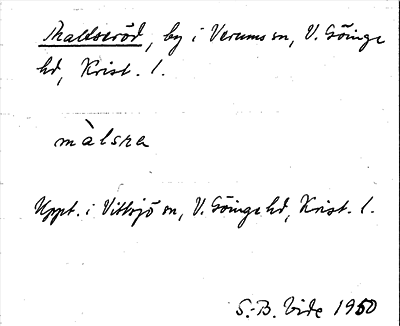 Maltseröd, by i Verums sn, V. Göinge
hd, Krist. l.
màlsra
Uppt. i Vittsjö sn, V. Göinge hd, Krist. l.
S.-B. Vide 1950